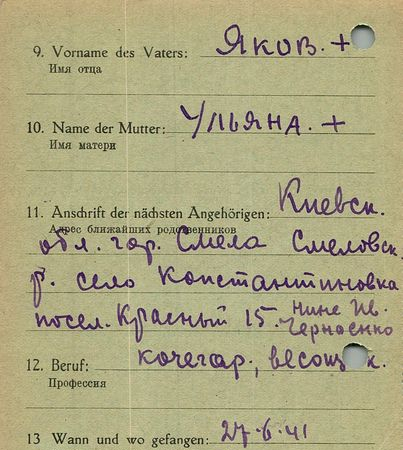 9. Vorname des Vaters: Яков. +
Имя отца
10. Name der Mutter: Ульяна. +
Имя матери
11. Anschrift der nächsten Angehörigen: Киевск.
Адрес ближайших родственников
обл. гор. Смела Смеловск.
р. село Константиновка
посел. Красный 15. Нине Ив.
Черноенко
12. Beruf: кочегар,
Профессия
13 Wann und wo gefangen: 27-6-41